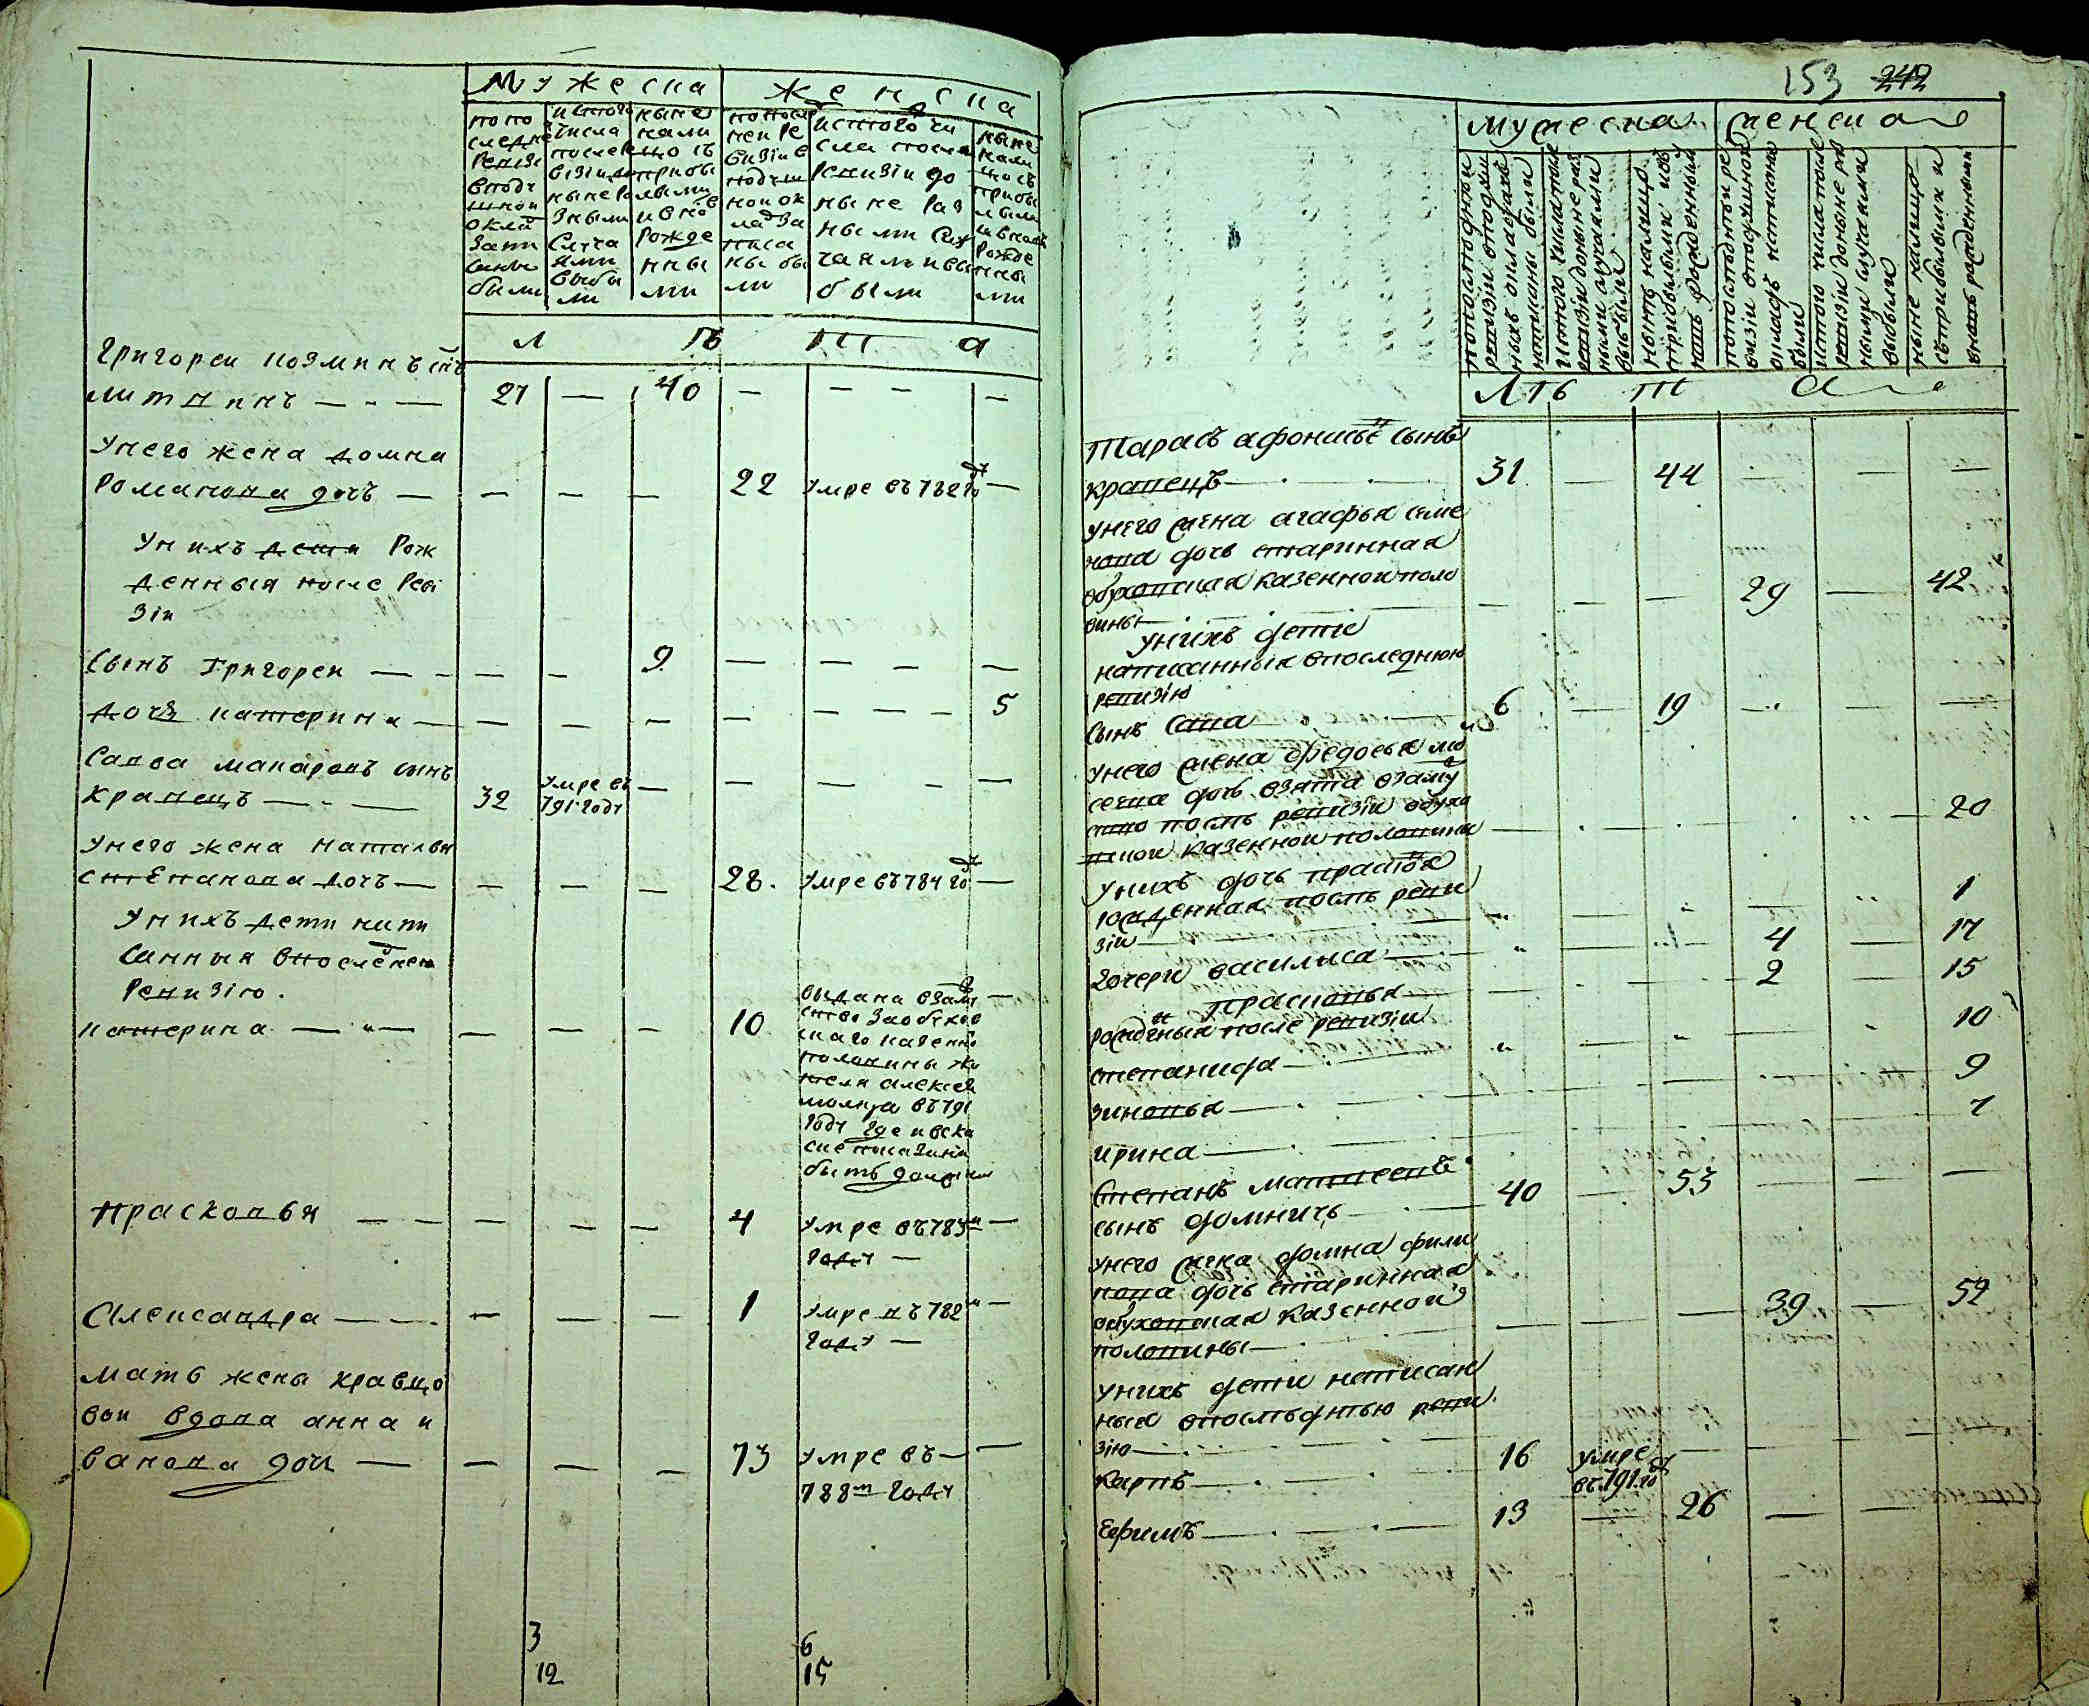 Мужеска
Женска
по по
следне
Ревизи
в поду
шнои
оклад
запи
саны
были
ис того
числа
после Ре
визии до
ныне Ра
зными
случа
ями
выбы
ли
ныне
нали
цо съ
прибы
лыми
и внов
Рожде
нны
ми
по посл
неи Ре
визіи в
подуш
нои ок
лад за
писа
ны бы
ли
ис того чи
сла после
Ревизіи до
ныне Раз
ными слу
чаями вы
были
ныне
нали
цо съ
прибы
лыми
и вновь
Рожде
нны
ми
Л Ѣ Т А
Григореи Козминъ снъ
Литвинъ
21
40
У него жена домна
Романова дочъ
22
умре въ 782 году
У нихъ дети Рож
денныя после Реви
Зіи
Сынъ Григореи
9
дочъ катерина
5
Савва макаровъ сынъ
Кравецъ
32
умре въ
791 году
У него жена Наталья
Степанова дочъ
28.
умре въ 784 году
У нихъ дети напи
санныя в последнею
Ревизію.
катерина
10
выдана взаму
ство за обухов
скаго казенно
половины жи
теля алексея
въ 791
году где и в ска
ске показана
быть должна
Прасковья
4
умре въ 783м
году
Александра
1
умре въ 782м
году
мать жены кравцо
вои вдова анна и
ванова дочь
73
умре въ
788м году
3
12
6
15
153 242
мужеска
женска
по последнеи
ревизіи в подуш
ныхъ окладахъ
написаны были
ис того числа после
ревизіи до ныне раз
ными случаями
выбыли
ныне на лицо
с прибылыми и въ
новь рожденными
по последнеи ре
визіи в подушнои
окладъ написаны
были
ис того числа после
ревизіи до ныне раз
ными случаями
выбыли
ныне на лицо
съ прибылыми и
вновь рожденными
Лѣта
Тарасъ афонасьевъ сынъ
кравецъ
31
44
у него жена агафья семе
нова дочь старинная
обуховская казеннои поло
вины
29
42
у нихъ дети
написанныя в последнюю
ревизію
Сынъ Сава
6
19
у него жена федосья мо
сеева дочь взята в заму
ство после ревизіи обухо
вскои казеннои половины
20
у нихъ дочь прасковя
рожденная после реви
зіи
1
дочери василиса
4
17
прасковья
2
15
рожденыя после ревизіи
степанида
10
зиновья
9
ирина
7
Степанъ матвеевъ
сынъ домничъ
40
53
у него жена домна фили
пова дочь старинная
обуховская казеннои
половины
39
52
у нихъ дети написан
ныя в последнею реви
зію
карпъ
16
умре
въ 791 году
Ефимъ
13
26